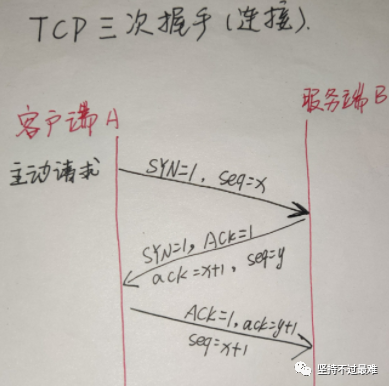 TCP三次握手(连接).
客户端A
服务端B
主动请求
SYN=1, seq=x
SYN=1, ACK=1
ack=x+1, seq=y
ACK=1, ack=y+1
seq=x+1
坚持不过最难